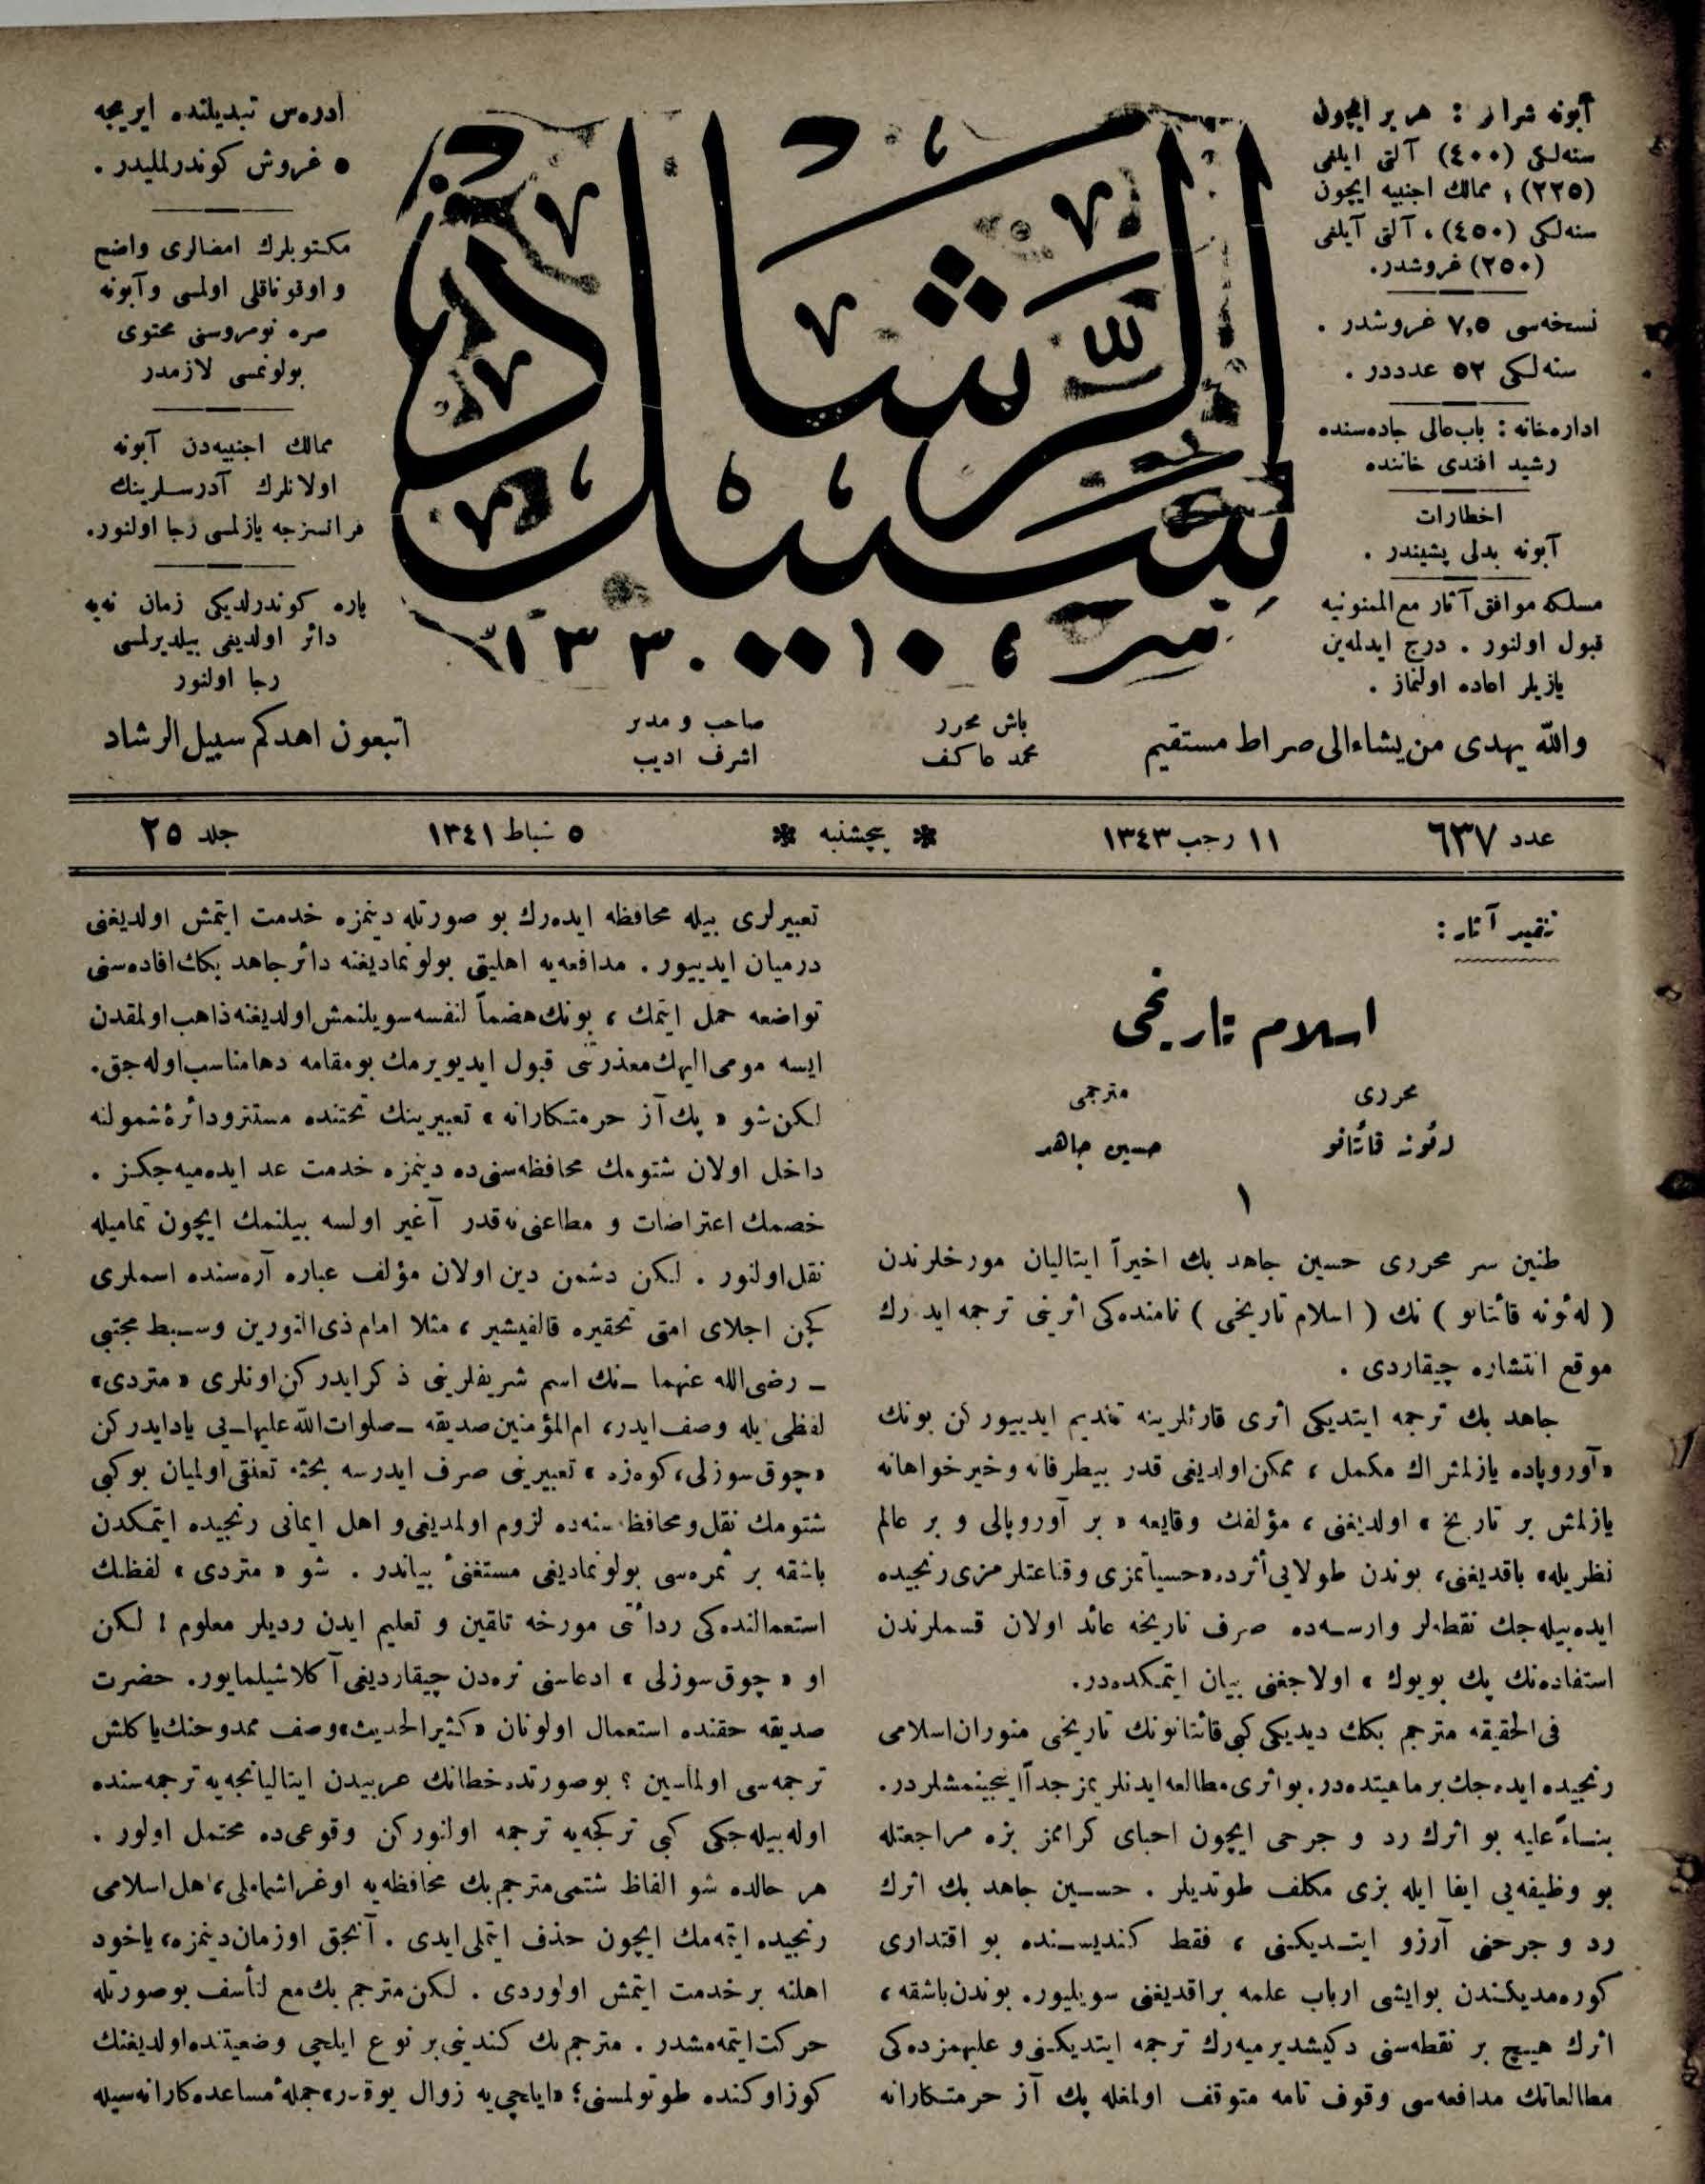 آبونه شرائطی : هر یر ایچون
سنه‌لکی (٤٠٠) آلتی ایلغی
(٢٢٥) ، ممالك اجنبیه ایچون
سنه‌لکی (٤٥٠) ، آلتی آیلغی
(٢٥٠) غروشدر.
نسخه‌سی ٧,٥ غروشدر .
سنه‌لکی ٥٢ عدددر .
اداره‌خانه : باب‌عالی جاده‌سنده
رشید افندی خاننده
اخطارات
آبونه بدلی پشیندر .
مسلکه موافق آثار مع‌الممنونیه
قبول اولنور . درج ایدلمه‌ین
یازیلر اعاده اولنماز .
سبیل الرشاد
١٣٣٠
ادره‌س تبدیلنده ایریجه
٥ غروش کوندرلملیدر .
مکتوبلرك امضالری واضح
و اوقوناقلی اولمسی وآبونه
صره نومروسنی محتوی
بولونمسی لازمدر
ممالك اجنبیه‌دن آبونه
اولانلرك آدرسلرینك
فرانسزجه یازلمسی رجا اولنور.
پاره کوندرلدیکی زمان نه‌یه
دائر اولدیغی بیلدیرلمسی
رجا اولنور
والله یهدی من یشاء الی صراط مستقیم
باش محرر
محمد عاکف
صاحب و مدیر
اشرف ادیب
اتبعون اهدکم سبیل الرشاد
عدد ٦٣٧
١١ رجب ١٣٤٣
❋ پنجشنبه ❋
٥ شباط ١٣٤١
جلد ٢٥
تنقید آثار :
اسلام تاریخی
محرری
لەئونه قائتانو
مترجمی
حسین جاهد
١
طنین سر محرری حسین جاهد بك اخیراً ایتالیان مورخلرندن
( لەئونه قائتانو ) نك ( اسلام تاریخی ) نامنده‌کی اثرینی ترجمه ایده‌رك
موقع انتشاره چیقاردی .
جاهد بك ترجمه ایتدیکی اثری قارئلرینه تقدیم ایدییورکن بونك
«آوروپاده یازلمش اك مکمل ، ممکن اولدیغی قدر بیطرفانه وخیرخواهانه
یازلمش بر تاریخ » اولدیغنی ، مؤلفك وقایعه « بر آوروپالی و بر عالم
نظریله» باقدیغنی، بوندن طولایی اثرده «حسیاتمزی وقناعتلرمزی رنجیده
ایده‌بیله‌جك نقطه‌لر وارسه‌ده صرف تاریخه عائد اولان قسملرندن
استفاده‌نك پك بویوك » اولاجغنی بیان ایتمکده‌در.
فی الحقیقه مترجم بكك دیدیکی کبی قائتانونك تاریخی منوران اسلامی
رنجیده ایده‌جك بر ماهیتده‌در. بو اثری مطالعه ایدنلریمز جداً ایچینمشلردر.
بناءً علیه بو اثرك رد و جرحی ایچون احبای کرامز بزه مراجعتله
بو وظیفه‌یی ایفا ایله بزی مکلف طوتدیلر . حسین جاهد بك اثرك
رد و جرحنی آرزو ایتدیکنی ، فقط کندیسنده بو اقتداری
کوره‌مدیکندن بوایشی ارباب علمه براقدیغنی سویلیور. بوندن باشقه ،
اثرك هیچ بر نقطه‌سنی دکیشدیرمیه‌رك ترجمه ایتدیکنی و علیهمزده‌کی
مطالعاتك مدافعه‌سی وقوف تامه متوقف اولمغله پك آز حرمتکارانه
تعبیرلری بیله محافظه ایده‌رك بو صورتله دینمزه خدمت ایتمش اولدیغنی
درمیان ایدییور . مدافعه‌یه اهلیتی بولونمادیغنه دائر جاهد بكك افاده‌سنی
تواضعه حمل ایتمك ، بونك هضماً لنفسه سویلنمش اولدیغنه ذاهب اولمقدن
ایسه مومی الیهك معذرتنی قبول ایدیویرمك بومقامه دها مناسب اوله‌جق.
لکن شو « پك آز حرمتکارانه » تعبیرینك تحتنده مستتر ودائرهٔ شمولنه
داخل اولان شتومك محافظه‌سنی‌ده دینمزه خدمت عد ایده‌میه‌جکز .
خصمك اعتراضات و مطاعنی نه‌قدر آغیر اولسه بیلنمك ایچون تمامیله
نقل اولنور . لکن دشمن دین اولان مؤلف عباره آره‌سنده اسملری
کچن اجلای امتی تحقیره قالقیشیر ، مثلا امام ذی النورین وسبط مجتبی
ـ رضی الله عنهما ـ نك اسم شریفلرینی ذکر ایدرکن اونلری « متردی »
لفظی یله وصف ایدر، ام المؤمنین صدیقه ـ صلوات الله علیها ـ یی یاد ایدرکن
«چوق سوزلی، کوه‌زه » تعبیرینی صرف ایدرسه بحثه تعلقی اولمیان بوکبی
شتومك نقل و محافظه‌سنه‌ده لزوم اولمدیغی و اهل ایمانی رنجیده ایتمکدن
باشقه بر ثمره‌سی بولونمادیغی مستغنیٔ بیاندر . شو « متردی » لفظك
استعمالنده‌کی ردائتی مورخه تلقین و تعلیم ایدن ردیلر معلوم ! لکن
او « چوق سوزلی » ادعاسنی نره‌دن چیقاردیغی آکلاشیلمایور. حضرت
صدیقه حقنده استعمال اولونان «کثیر الحدیث» وصف ممدوحنك یاکلش
ترجمه‌سی اولماسین ؟ بوصورتده خطانك عربیدن ایتالیانجه‌یه ترجمه‌سنده
اوله‌بیله‌جکی کبی ترکجه‌یه ترجمه اولنورکن وقوعی‌ده محتمل اولور .
هر حالده شو الفاظ شتمی مترجم بك محافظه‌یه اوغراشماملی، اهل اسلامی
رنجیده ایتمه‌مك ایچون حذف ایتملی ایدی . آنجق اوزمان دینمزه، یاخود
اهلنه بر خدمت ایتمش اولوردی . لکن مترجم بك مع التأسف بوصورتله
حرکت ایتمه‌مشدر . مترجم بك کندینی بر نوع ایلچی وضعیتنده اولدیغنك
کوز اوکنده طوتولمسنی ؛ «ایلچی‌یه زوال یوقدر» جملهٔ مساعده‌کارانه‌سیله